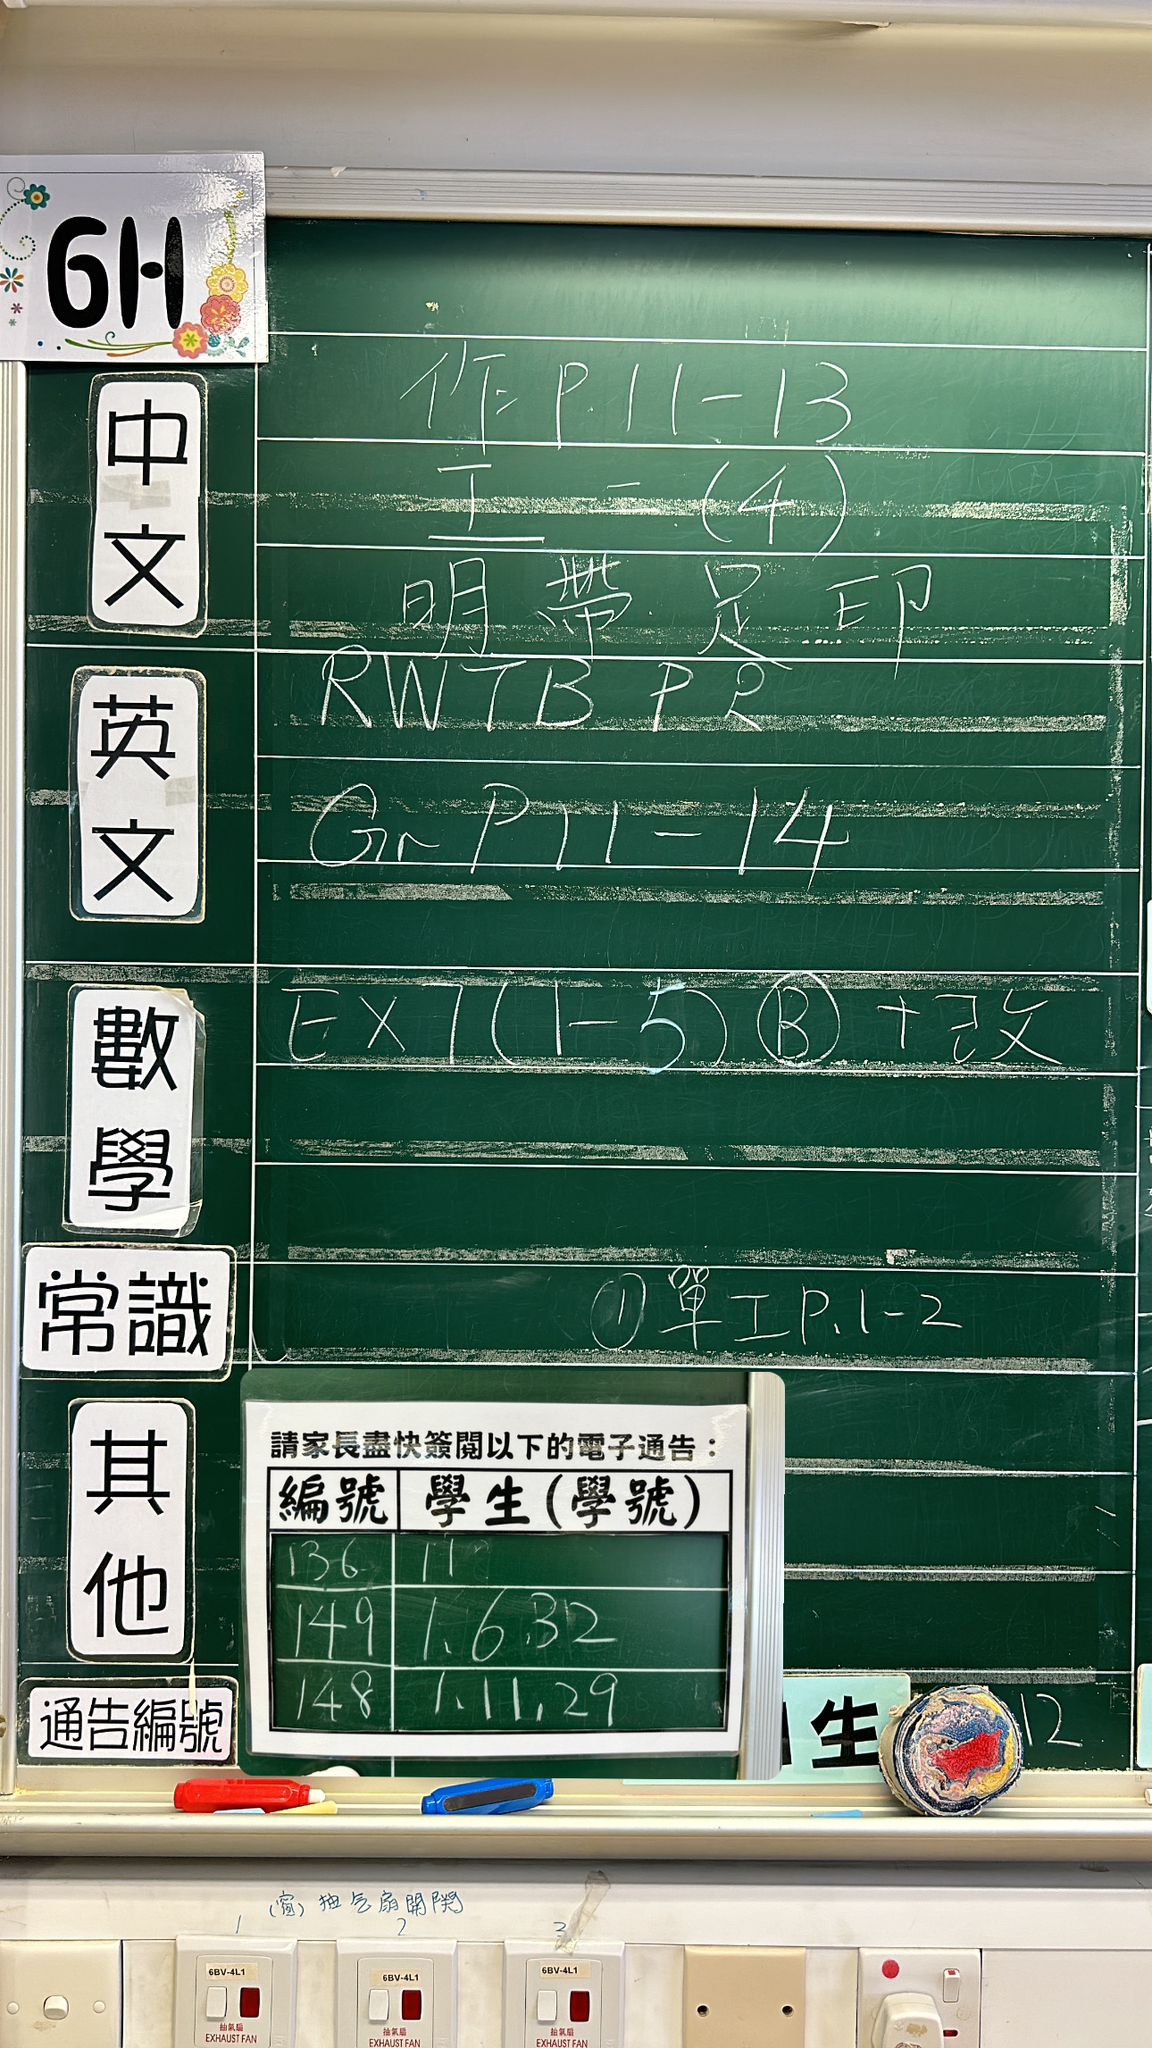 6H
中文
作 P.11-13
工 二 (4)
明 帶 足 印
英文
RWTB P2
Gr P11-14
數學
EX7(1-5) Ⓑ + 改
常識
① 單工 P.1-2
其他
請家長盡快簽閱以下的電子通告:
編號 學生(學號)
136 11
149 1.6.32
148 1.11.29
通告編號
生 12
(窗) 抽气扇開関
1 2 3
6BV-4L1 6BV-4L1 6BV-4L1
抽氣扇 抽氣扇 抽氣扇
EXHAUST FAN EXHAUST FAN EXHAUST FAN